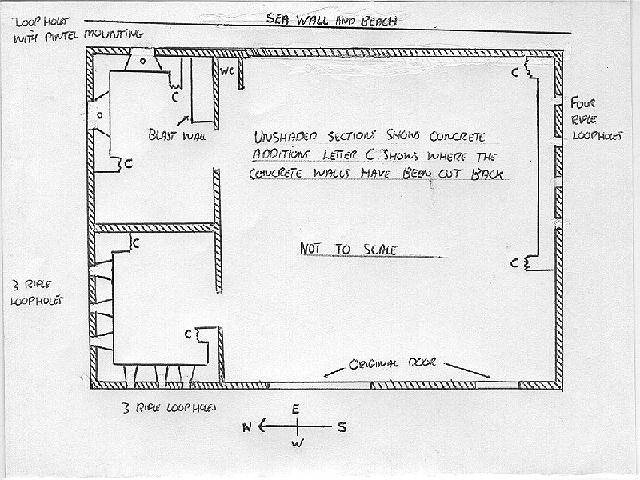 LOOP HOLES
WITH PINTEL MOUNTING
SEA WALL AND BEACH
WC
C
C
C
BLAST WALL
FOUR
RIFLE
LOOPHOLES
UNSHADED SECTIONS SHOWS CONCRETE
ADDITIONS LETTER C SHOWS WHERE THE
CONCRETE WALLS HAVE BEEN CUT BACK
C
NOT TO SCALE
C
3 RIFLE
LOOPHOLES
C
ORIGINAL DOOR
3 RIFLE LOOPHOLES
E
W
S
W